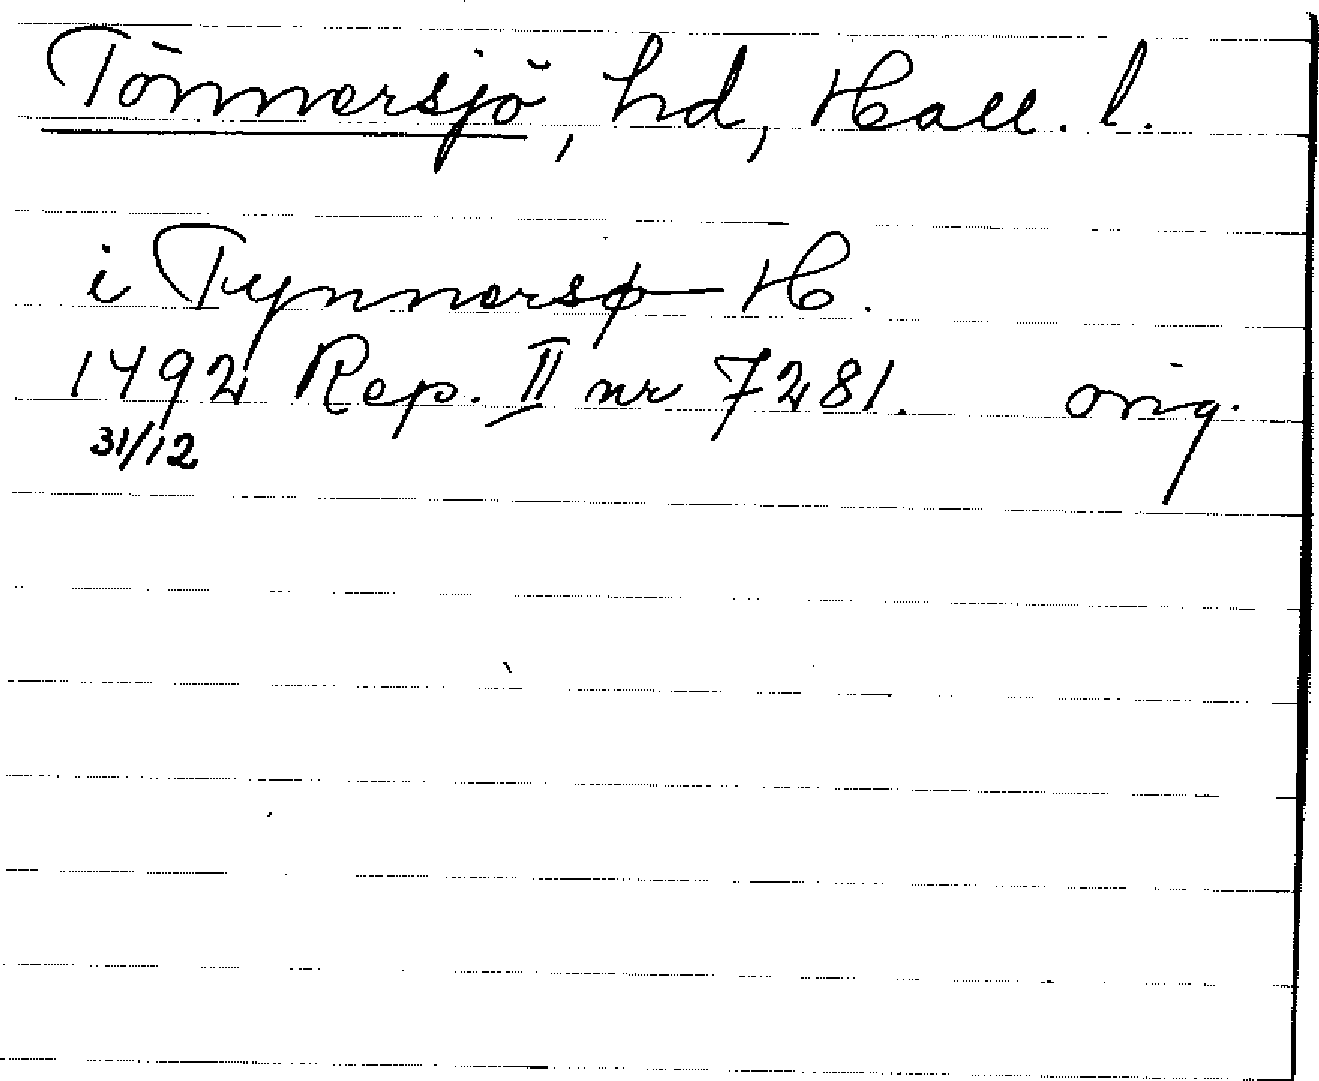 Tönnersjö, hd, Hall. l.
i Tynnersø H.
1492 Rep. II nr 7281. orig.
31/12